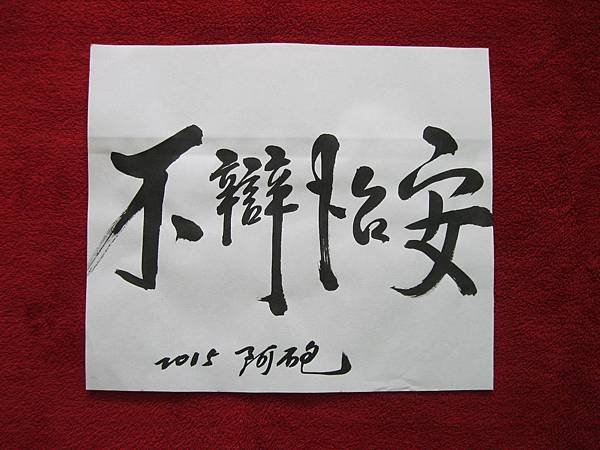 不辯怡安
2015 阿砲